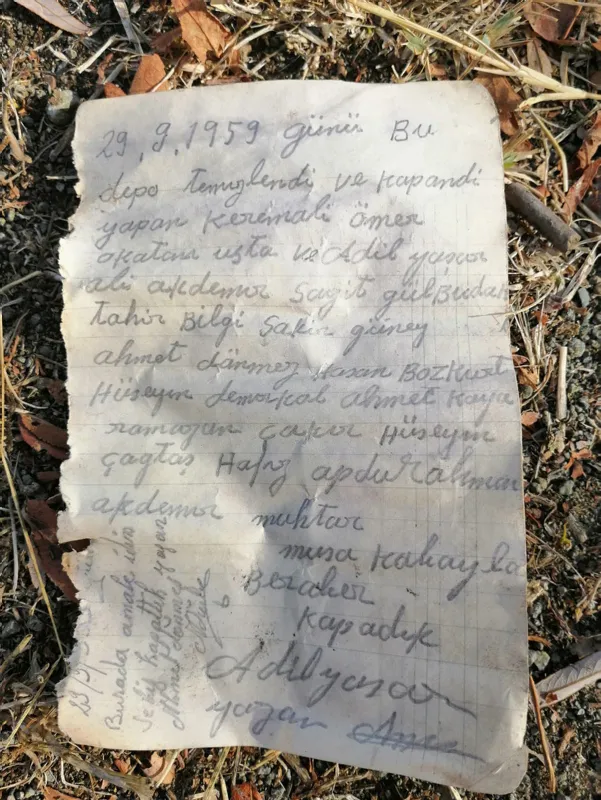 29.9.1959 günü Bu
depo temizlendi ve kapandi
yapan keremali ömer
usta ve Adil yaşar
ali akdemir Sagit gülBudak
tahir Bilgi Şakir güney
ahmet dönmez Hasan Bozkurt
Hüseyin demirkal ahmet kaya
ramazan çakır Hüseyin
çagtaş Hafız apdurahman
akdemir muhtar
musa kahayla
Beraber
kapadık
Adil yaşar
yazan
Burada
Ahmet dönmez